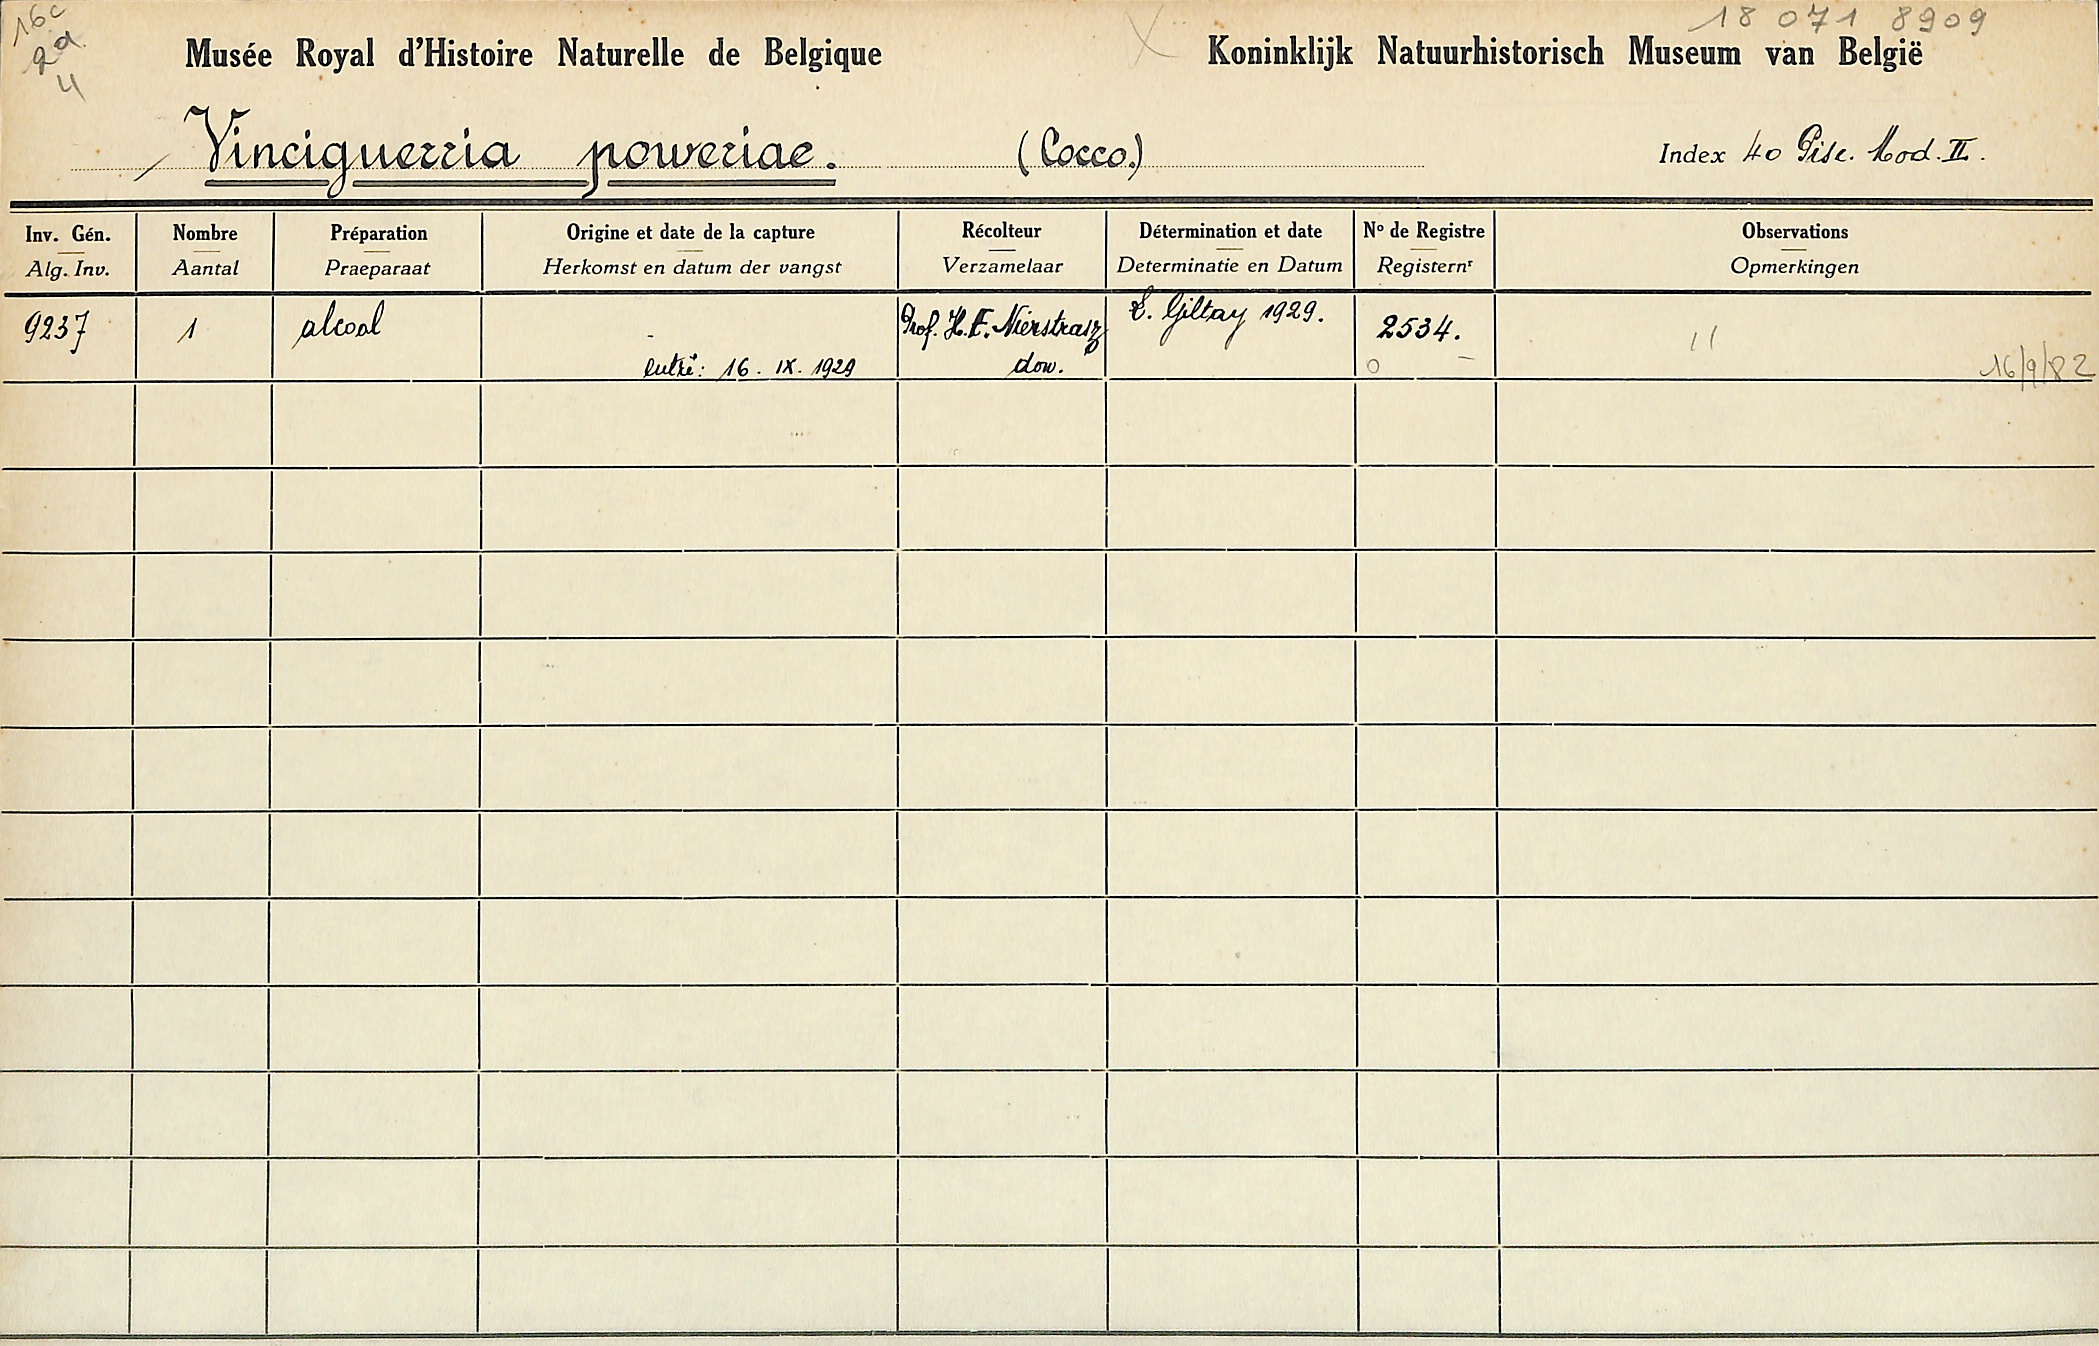 16c
2a
4
18 071 8909
Musée Royal d'Histoire Naturelle de Belgique
Koninklijk Natuurhistorisch Museum van België
Vinciguerria poweriae. (Cocco.)
Index 40 Pisc. Mod. II.
Inv. Gén. Nombre Préparation Origine et date de la capture Récolteur Détermination et date No de Registre Observations
Alg. Inv. Aantal Praeparaat Herkomst en datum der vangst Verzamelaar Determinatie en Datum Registernr Opmerkingen
9237 1 alcool - Prof. H. F. Nierstrasz L. Giltay 1929. 2534. 11
entré: 16. IX. 1929 don. 0 - 16/9/82